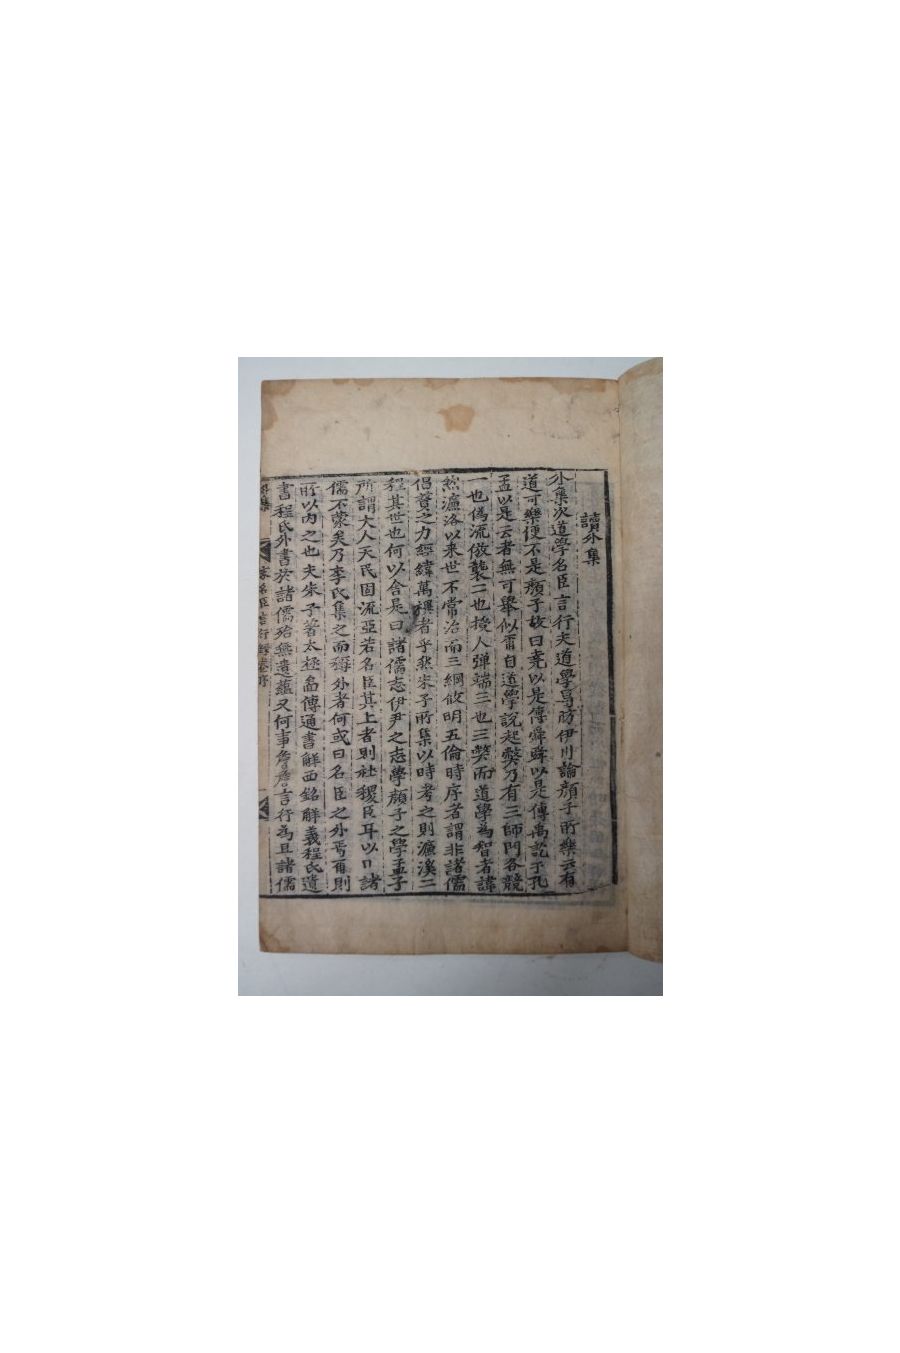 讀外集
外集次道學名臣言行夫道學昜昉伊川論顏子所樂云有
道可樂便不是顏子故曰堯以是傳舜舜以是傳禹訖于孔
孟以是云者無可擧似甭自道學說起弊乃有三師門各競
一也偽流倣襲二也授人彈端三也三弊而道學為智者諱
然濂洛以来世不常治而三綱攸明五倫時序者謂非諸儒
倡贊之力經緯萬㩀者乎然朱子所集以時考之則濂溪二
程其世也何以舍是曰諸儒志伊尹之志學顏子之學孟子
所謂大人天民固流亞若名臣其上者則社稷臣耳以曰諸
儒不蒙矣乃李氏集之而稱外者何或曰名臣之外焉甭則
所以内之也夫朱子著太極啚傳通書解西銘解義程氏遺
書程氏外書於諸儒殆無遺蘊又何事詹詹言行為且諸儒
外集
名臣言行錄卷序